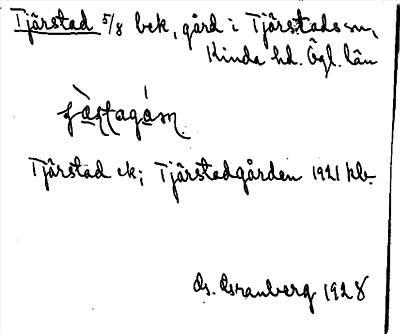 Tjärstad 5/8 bek, gård i Tjärstads sn,
Kinda hd. Ögl. län
Tjärstad ek; Tjärstadgården 1921 kb.
Cranberg 1928